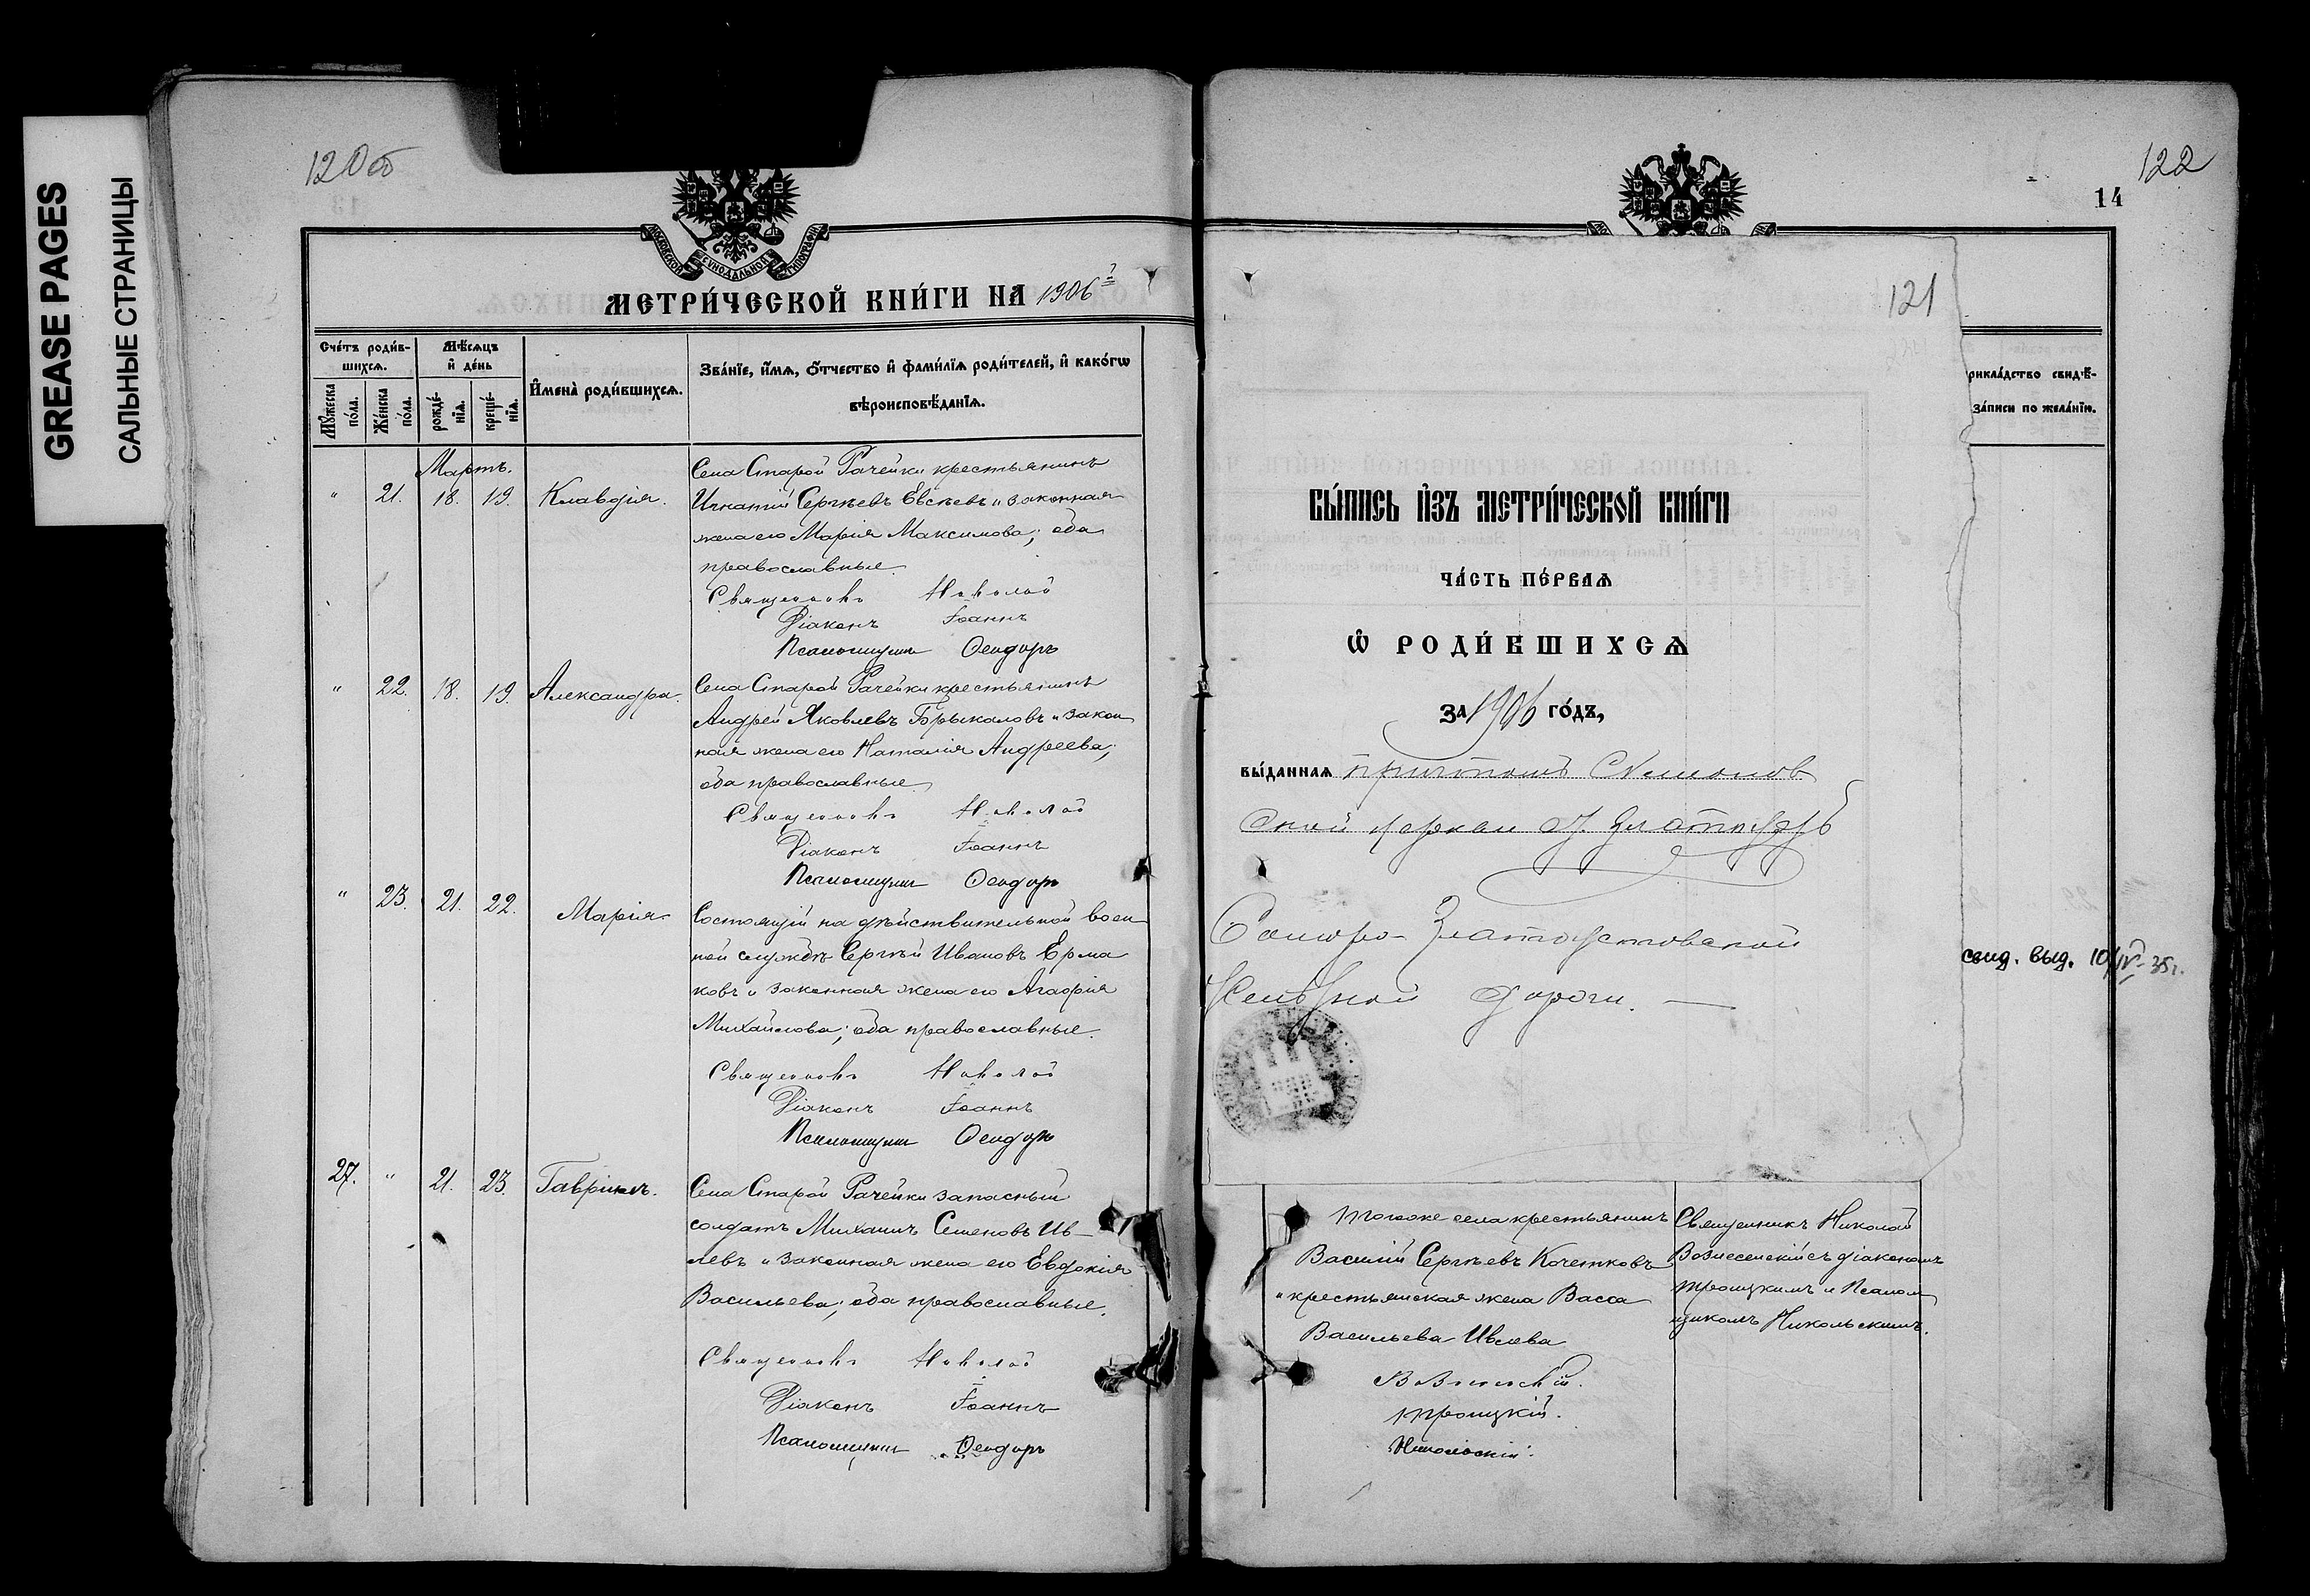 GREASE PAGES
САЛЬНЫЕ СТРАНИЦЫ
120об
МОСКОВСКОЙ СѴНОДАЛЬНОЙ ТИПОГРАФІИ
МЕТРИ́ЧЕСКОЙ КНИ́ГИ НА 1906й
Сче́тъ роди́в-
шихсѧ.
Мѣ́сѧцъ
и҆ де́нь
И҆мена̀ роди́вшихсѧ.
Зва́нїе, и҆́мѧ, ѻ҆́тчество и҆ фами́лїѧ роди́телей, и҆ како́гѡ
вѣроисповѣ́данїѧ.
Мꙋ́жеска
по́ла.
Же́нска
по́ла.
рожде́-
нїѧ.
креще́-
нїѧ.
Мартъ.
" 21. 18. 19. Клавдія.
Села Старой Рачейки крестьянинъ
Игнатій Сергѣевъ Евсѣевъ и законная
жена его Марія Максимова; оба
православные.
Священникъ Николай
Діаконъ Іоаннъ
Псаломщикъ Ѳеодоръ
" 22. 18. 19. Александра.
Села Старой Рачейки крестьянинъ
Андрей Яковлевъ Брыкаловъ и закон
ная жена его Наталія Андреева;
оба православные.
Священникъ Николай
Діаконъ Іоаннъ
Псаломщикъ Ѳеодоръ
" 23. 21. 22. Марія
Состоящій на дѣйствительной воен
ной службѣ Сергѣй Ивановъ Ерма
ковъ и законная жена его Агафія
Михайлова; оба православные.
Священникъ Николай
Діаконъ Іоаннъ
Псаломщикъ Ѳеодоръ
27. " 21. 23. Гавріилъ.
Села Старой Рачейки запасный
солдатъ Михаилъ Семеновъ Ив-
левъ и законная жена его Евдокія
Васильева; оба православные.
Священникъ Николай
Діаконъ Іоаннъ
Псаломщикъ Ѳеодоръ
122
14
121
рикла́дство свидѣ́-
за́писи по жела́нїю.
ВЫ́ПИСЬ И҆ЗЪ МЕТРИ́ЧЕСКОЙ КНИ́ГИ
ЧА́СТЬ ПЕ́РВАѦ
Ѡ҆ РОДИ́ВШИХСѦ
ЗА 1906 ГО́ДЪ,
ВЫ́ДАННАѦ причтомъ
ской церкви
Самаро-Златоустовской
дороги.
свид. выд. 10/IV-35г.
Того же села крестьянинъ
Василій Сергѣевъ Кочетковъ
и крестьянская жена Васса
Васильева Ивлева
Троицкій.
Никольскій.
Священникъ Николай
Вознесенскій съ діакономъ
Троицкимъ и Псалом
щикомъ Никольскимъ.